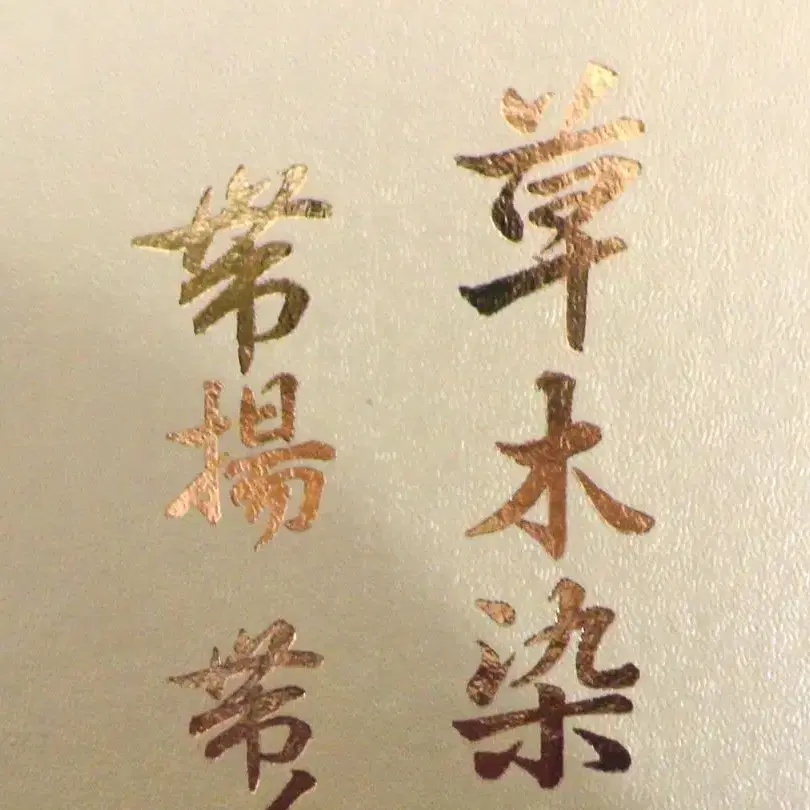 草木染
帯揚 帯